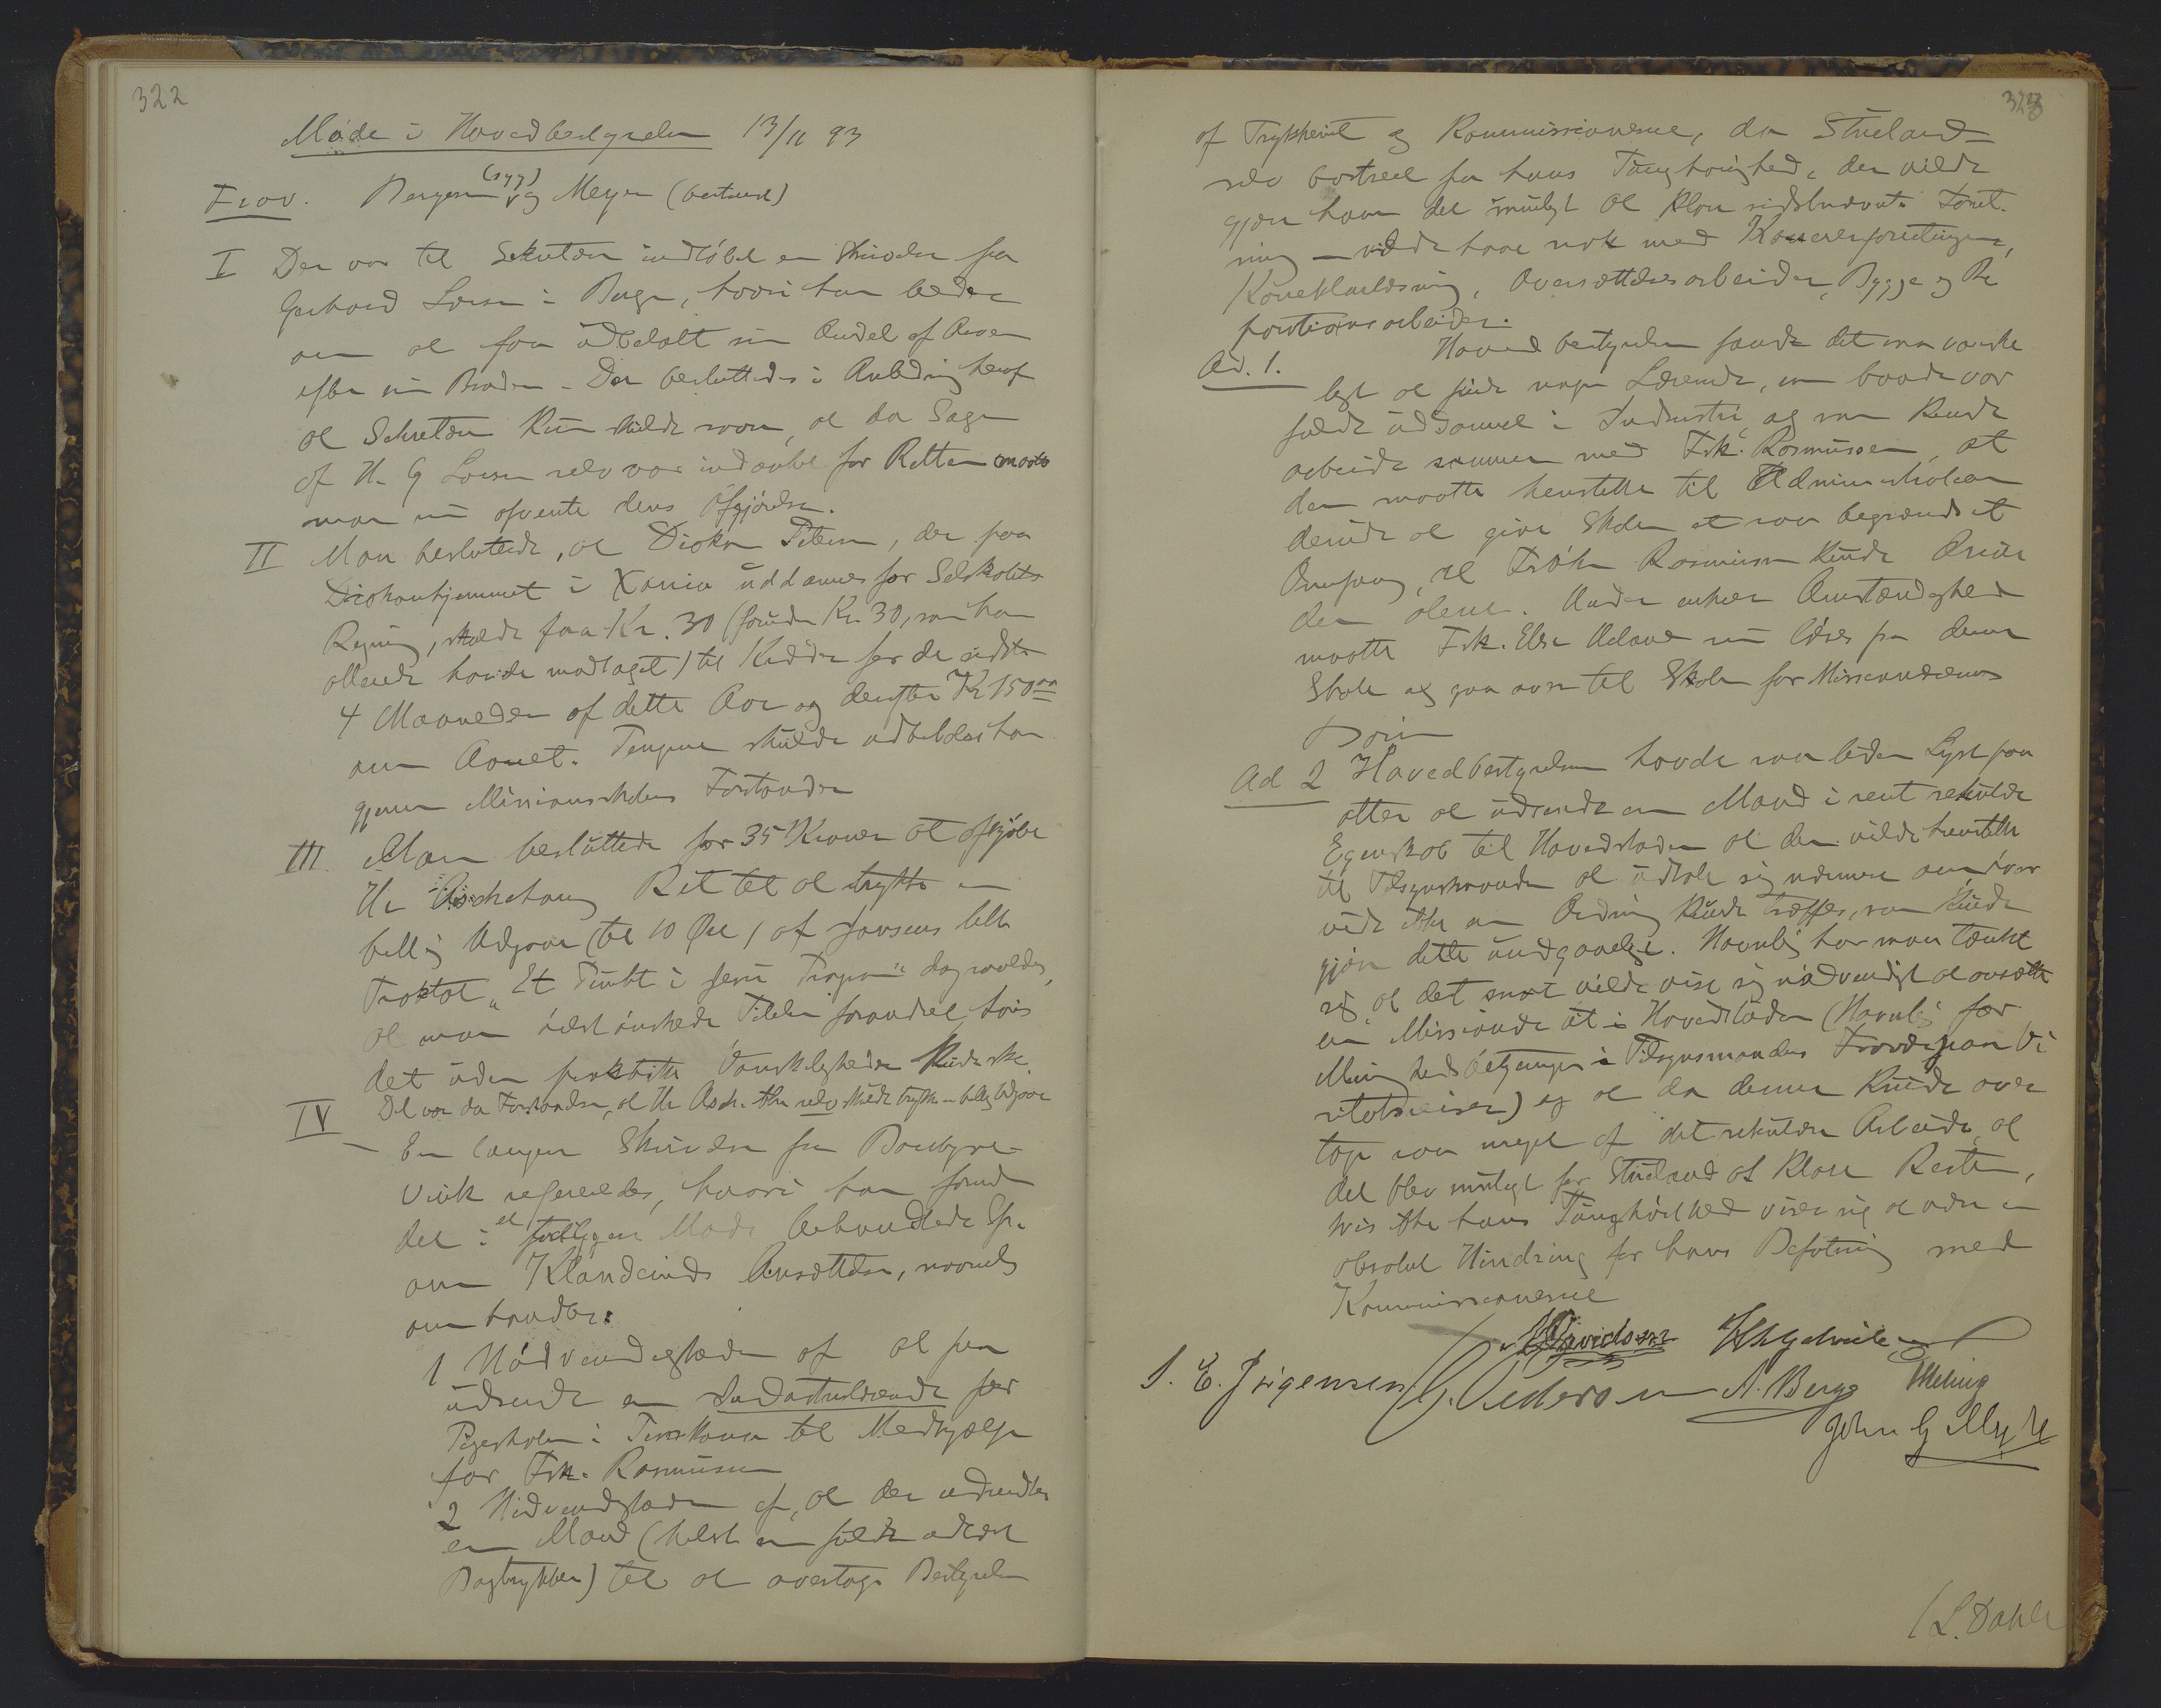 322
Møde i Hovedbestyrelsen 13/11 93
Frav. Bergesen (syg) og Meyer (bortreist)
I Der var til Sekretæren indløbet en Skrivelse fra
Gerhard Larsen i Bergen, hvori han beder
om at faa udbetalt sin Andel af Arven
efter sin Broder. Der besluttedes i Anledning heraf
at Sekretæren kun skulde svare, at da Sagen
af H. G Larsen selv var indanket for Retten maatte
man nu afvente dens Afgjørelse.
II Man besluttede, at Diakon Petersen, der paa
Diakonhjemmet i Xania uddannes for Selskabets
Regning, skulde faa Kr. 30 (foruden Kr. 30, som han
allerede havde modtaget) til Klæder for de sidste
4 Maaneder af dette Aar og derefter Kr 150,00
om Aaret. Pengene skulde udbetales ham
gjennem Missionsskolens Forstander
III Man besluttede for 35 Kroner at afkjøbe
Hr Aschehoug Ret til at trykke en
billig Udgave (til 10 Øre) af Johnsens lille
Traktat "Et Pust i fem Trope" dog saaledes,
at man helst ønskede Titelen forandret hvis
det uden praktiske Vanskeligheder kunde ske.
Det var da Forstaaelsen, at Hr Asch. ikke selv skulde trykke en billig Udgave
IV
En længere Skrivelse fra Borchgre-
vink refereredes, hvori han forud
det i et tidligere Møde behandlede Sp.
om Klanderuds Ansættelse, navnlig
omhandler:
1 Nødvendigheden af at faa
udsendt en Industrilærerinde for
Pigeskolen i Antananarivo til Medhjælp
for Frk. Rasmussen
2 Nødvendigheden af, at der udsendtes
en Mand (helst en fuldt udlært
Bogtrykker) til at overtage Bestyrelsen
323
af Trykkeriet og Kommissionerne, da Strueland
selv bortseet fra hans Tunghørighed, der vilde
gjøre ham det umuligt at klare sidstnævnte Forret-
ning – vilde have nok med Kassererforretningen,
Korrekturlæsning, Oversættelsesarbeider, Bygge og Re
parationsarbeider.
Ad. 1. Hovedbestyrelsen fandt det saa vanske
ligt at finde nogen Lærerinde, som baade var
fuldt uddannet i Industri og som kunde
arbeide sammen med Frk. Rasmussen, at
den maatte henstille til Administrationen
derude at give Skolen et saa begrændset
Omfang, at Frøken Rasmussen kunde drive
den alene. Under enhver Omstændighed
maatte Frk. Else Udland nu løses fra denne
Skole og gaa over til Skolen for Missionærernes
Børn
Ad 2 Hovedbestyrelsen havde saa liden Lyst paa
atter at udsende en Mand i rent sekulær
Egenskab til Hovedstaden at den vilde henstille
til Tilsynsmanden at udtale sig nærmere om hvor
vidt ikke en Ordning kunde træffes, som kunde
gjøre dette undgaaeligt. Navnlig har man tænkt
sig at det snart vilde vise sig nødvendigt at ansætte
en Missionær til i Hovedstaden (Navnlig for
Menighedsbetjeningen i Tilsynsmandens Fravær paa Vi
sitatsreiser) og at da denne kunde over
tage saa meget af det sekulære Arbeide, at
det blev muligt for Strueland at klare Resten,
hvis ikke hans Tunghørighed viser sig at være en
absolut Hindring for hans Befatning med
Kommissionerne
Davidsen
S. E. Jørgensen O. Pedersen A. Berge
John G Myhre
/ L. Dahle